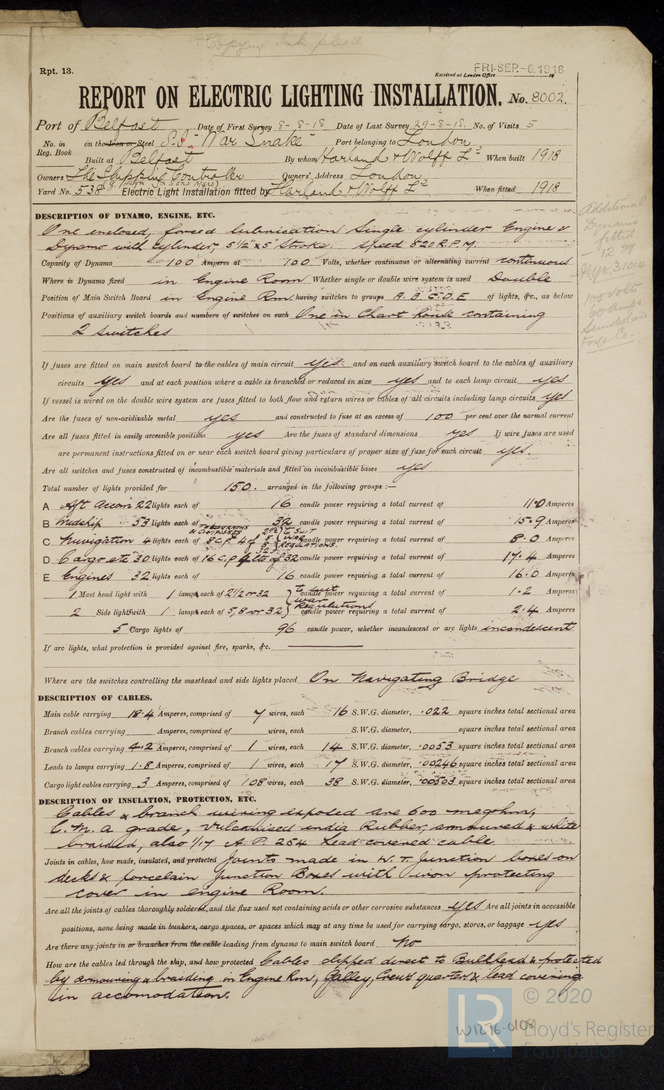 Copying Ink please
Rpt. 13.
Received at London Office FRI. SEP. -6. 1918
REPORT ON ELECTRIC LIGHTING INSTALLATION. No. 8002.
Port of Belfast Date of First Survey 8-8-18 Date of Last Survey 29-8-18. No. of Visits 5
No. in Reg. Book on the Iron or Steel S.S. "War Snake" Port belonging to London
Built at Belfast By whom Harland & Wolff Ld When built 1918
Owners The Shipping Controller Owners' Address London
Yard No. 538 Electric Light Installation fitted by Harland & Wolff Ld When fitted 1918
DESCRIPTION OF DYNAMO, ENGINE, ETC.
One enclosed, forced lubrication Single cylinder Engine &
Dynamo with cylinder, 5 1/2" x 5" Stroke. Speed 520 R.P.M.
Capacity of Dynamo 100 Amperes at 100 Volts, whether continuous or alternating current continuous
Where is Dynamo fixed in Engine Room Whether single or double wire system is used Double
Position of Main Switch Board in Engine Rm. having switches to groups A. B. C. D. E of lights, &c., as below
Positions of auxiliary switch boards and numbers of switches on each One in Chart house containing
2 switches
Additional
Dynamo
fitted
12.29
100 volts
60 Amps
Sunderland
Forge Co.
If fuses are fitted on main switch board to the cables of main circuit yes and on each auxiliary switch board to the cables of auxiliary
circuits yes and at each position where a cable is branched or reduced in size yes and to each lamp circuit yes
If vessel is wired on the double wire system are fuses fitted to both flow and return wires or cables of all circuits including lamp circuits yes
Are the fuses of non-oxidizable metal yes and constructed to fuse at an excess of 100 per cent over the normal current
Are all fuses fitted in easily accessible positions yes Are the fuses of standard dimensions yes If wire fuses are used
are permanent instructions fitted on or near each switch board giving particulars of proper size of fuse for each circuit yes.
Are all switches and fuses constructed of incombustible materials and fitted on incombustible bases yes
Total number of lights provided for 150. arranged in the following groups :—
A Aft Accom 22 lights each of 16 candle power requiring a total current of 11.0 Amperes
B Midship 53 lights each of 32 candle power requiring a total current of 15.9 Amperes
C Navigation 4 lights each of 8 C.P. candle power requiring a total current of 8.0 Amperes
D Cargo etc 30 lights each of 16 C.P. & 6 of 32 candle power requiring a total current of 17.4 Amperes
E Engines 32 lights each of 16 candle power requiring a total current of 16.0 Amperes
1 Mast head light with 1 lamps each of 2 1/2 or 32 candle power requiring a total current of 1.2 Amperes
2 Side lights with 1 lamps each of 5, 8 or 32 candle power requiring a total current of 2.4 Amperes
to suit
war
Regulations
5 Cargo lights of 96 candle power, whether incandescent or arc lights incandescent
If arc lights, what protection is provided against fire, sparks, &c.
Where are the switches controlling the masthead and side lights placed On Navigating Bridge
DESCRIPTION OF CABLES.
Main cable carrying 18.4 Amperes, comprised of 7 wires, each 16 S.W.G. diameter, .022 square inches total sectional area
Branch cables carrying Amperes, comprised of wires, each S.W.G. diameter, square inches total sectional area
Branch cables carrying 4.2 Amperes, comprised of 1 wires, each 14 S.W.G. diameter, .0053 square inches total sectional area
Leads to lamps carrying 1.8 Amperes, comprised of 1 wires, each 17 S.W.G. diameter, .00246 square inches total sectional area
Cargo light cables carrying 3 Amperes, comprised of 108 wires, each 38 S.W.G. diameter, .00303 square inches total sectional area
DESCRIPTION OF INSULATION, PROTECTION, ETC.
Cables & branch wiring exposed are 600 megohm,
C.M.A grade, Vulcanised india Rubber, armoured & white
braided, also 1/17 A.P. 254 Lead covered cable.
Joints in cables, how made, insulated, and protected Joints made in W.T. Junction boxes on
decks & porcelain Junction Boxes with iron protecting
cover in engine Room.
Are all the joints of cables thoroughly soldered, and the flux used not containing acids or other corrosive substances yes Are all joints in accessible
positions, none being made in bunkers, cargo spaces, or spaces which may at any time be used for carrying cargo, stores, or baggage yes
Are there any joints in or branches from the cable leading from dynamo to main switch board No
How are the cables led through the ship, and how protected Cables clipped direct to Bulkhead & protected
by armouring & braiding in Engine Rm, Galley, Crews quarters & lead covering
in accomodation.
W1276-0108
LR © 2020
Lloyd's Register
Foundation